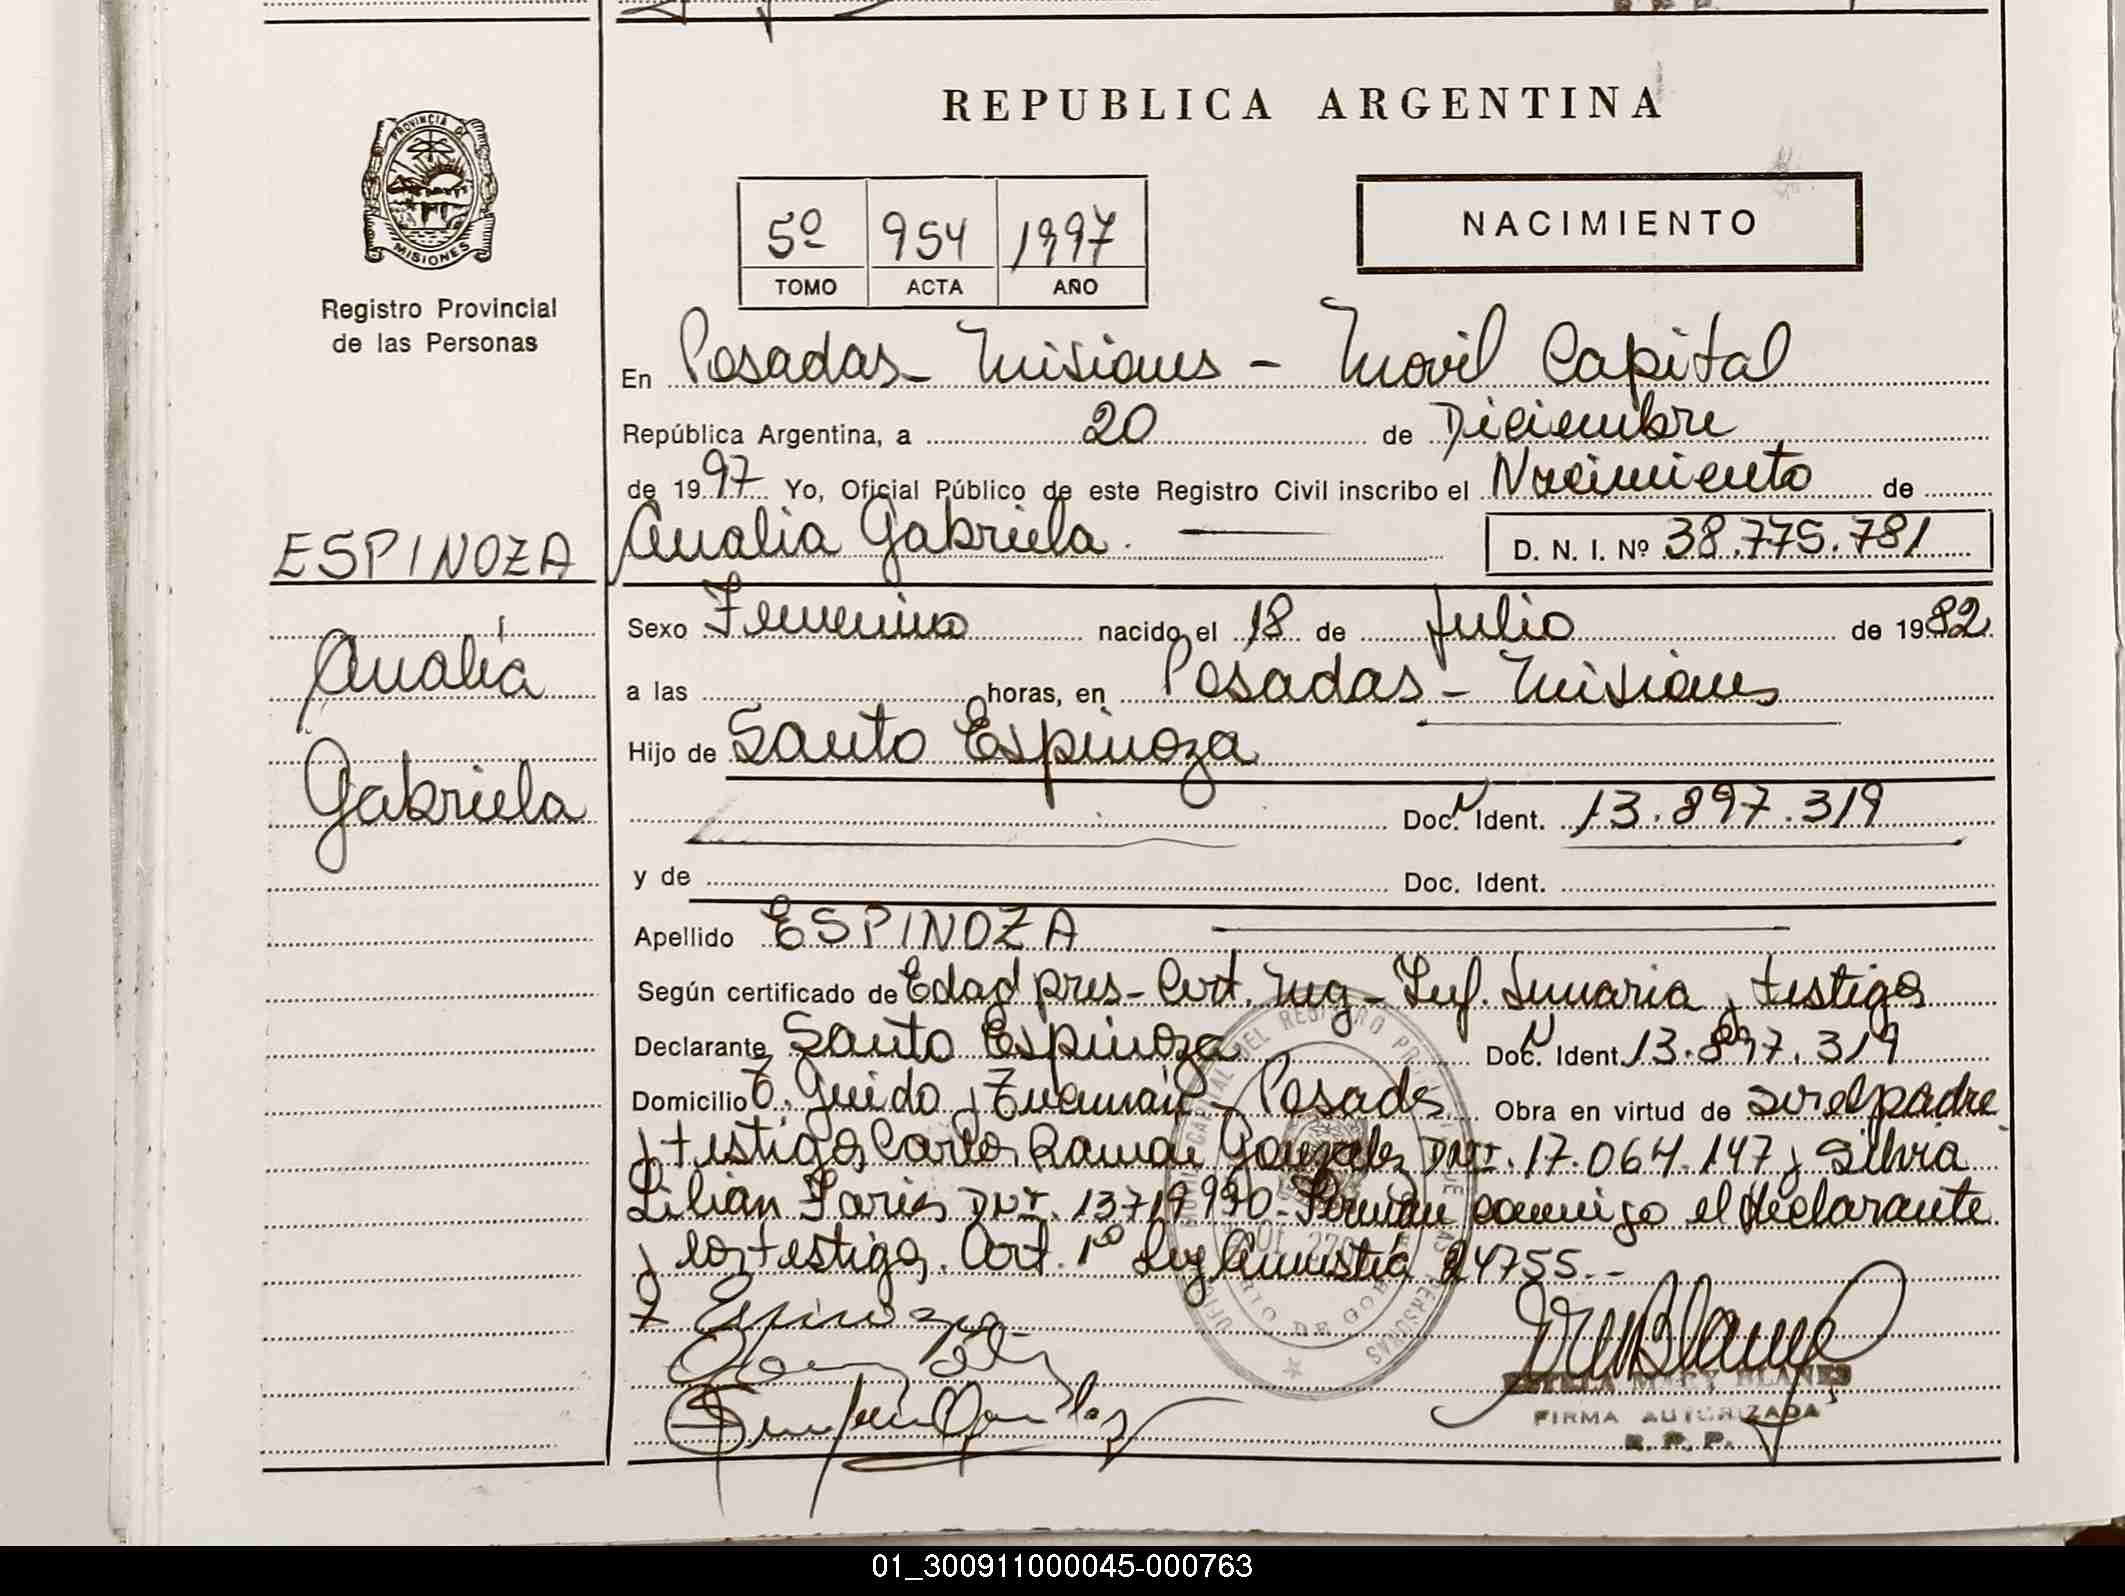 REPUBLICA ARGENTINA
PROVINCIA DE
MISIONES
Registro Provincial
de las Personas
5º 954 1997
TOMO ACTA AÑO
NACIMIENTO
En Posadas - Misiones - Movil Capital
República Argentina, a 20 de Diciembre
de 1997 Yo, Oficial Público de este Registro Civil inscribo el Nacimiento de
ESPINOZA
Analia Gabriela. D. N. I. Nº 38.775.781
Analía
Gabriela
Sexo Femenino nacido el 18 de Julio de 1982
a las horas, en Posadas - Misiones
Hijo de Santo Espinoza
Doc. N Ident. 13.897.319
y de Doc. Ident.
Apellido ESPINOZA
Según certificado de Edad pres- Cert. Neg - Inf. Sumaria y testigos
Declarante Santo Espinoza Doc. N Ident. 13.897.319
Domicilio T. Guido y Tucumán - Posadas Obra en virtud de ser el padre
y testigos Carlos Ramon Gonzalez DNI. 17.064.147 y Silvia
Lilian DNI. 13719990. Firman conmigo el declarante
y los testigos. Art. 1º Ley Amnistía 24755.-
Espinoza
STELLA MARY BLANES
FIRMA AUTORIZADA
R. P. P.
01_300911000045-000763